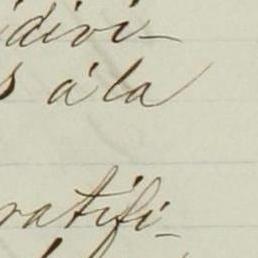 idivi-
s á la
ratifi-